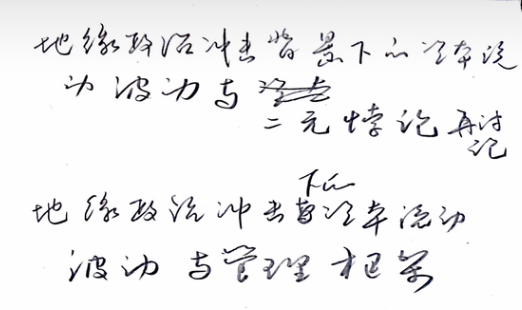 地缘政治冲击背景下的资本流
动波动与
二元悖论再讨
论
下的
地缘政治冲击资本流动
波动与管理框架